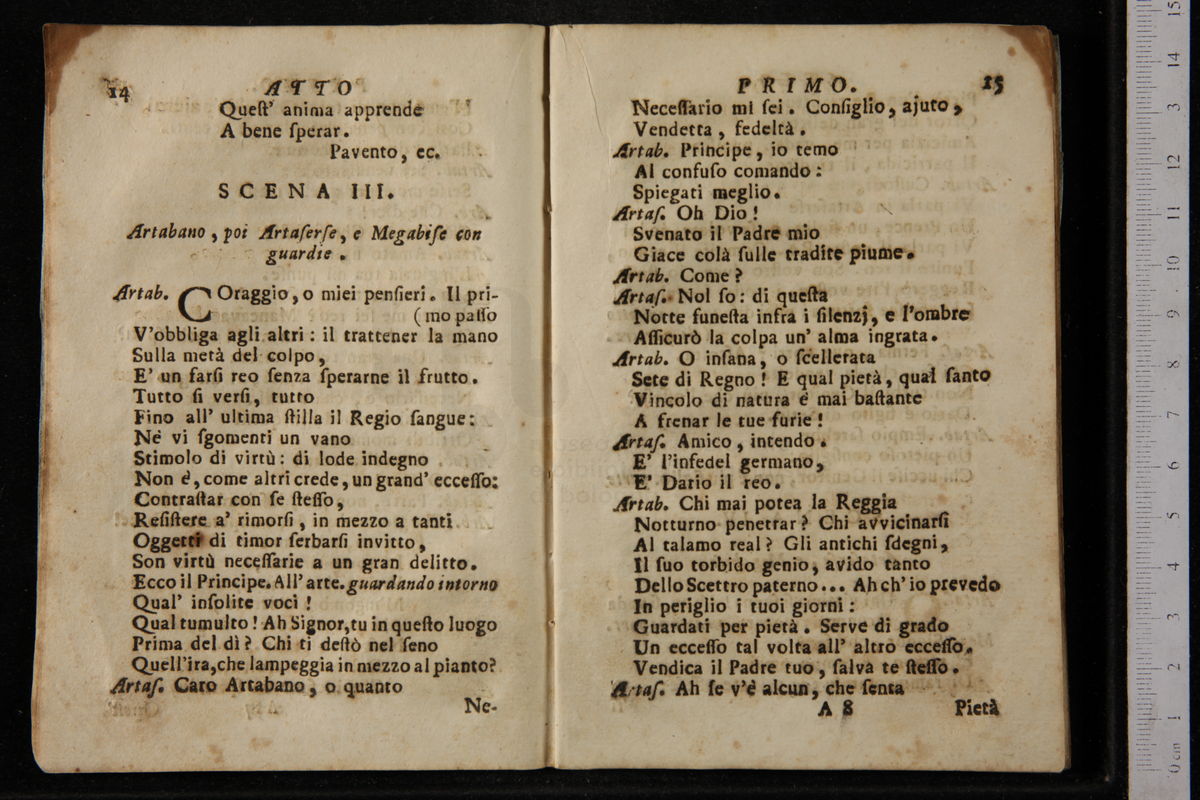 14 ATTO
Queſt' anima apprende
A bene ſperar.
Pavento, ec.
SCENA III.
Artabano, poi Artaſerſe, e Megabiſe con
guardie.
Artab. COraggio, o miei penſieri. Il pri-
(mo paſſo
V'obbliga agli altri: il trattener la mano
Sulla metà del colpo,
E' un farſi reo ſenza ſperarne il frutto.
Tutto ſi verſi, tutto
Fino all' ultima ſtilla il Regio ſangue:
Nè vi ſgomenti un vano
Stimolo di virtù: di lode indegno
Non è, come altri crede, un grand' ecceſſo:
Contraſtar con ſe ſteſſo,
Reſiſtere a' rimorſi, in mezzo a tanti
Oggetti di timor ſerbarſi invitto,
Son virtù neceſſarie a un gran delitto.
Ecco il Principe. All' arte. guardando intorno
Qual' inſolite voci!
Qual tumulto! Ah Signor, tu in queſto luogo
Prima del dì? Chi ti deſtò nel ſeno
Quell'ira, che lampeggia in mezzo al pianto?
Artaſ. Caro Artabano, o quanto
Ne-
PRIMO. 15
Neceſſario mi ſei. Conſiglio, ajuto,
Vendetta, fedeltà.
Artab. Principe, io temo
Al confuſo comando:
Spiegati meglio.
Artaſ. Oh Dio!
Svenato il Padre mio
Giace colà ſulle tradite piume.
Artab. Come?
Artaſ. Nol ſo: di queſta
Notte funeſta infra i ſilenzj, e l'ombre
Aſſicurò la colpa un' alma ingrata.
Artab. O inſana, o ſcellerata
Sete di Regno! E qual pietà, qual ſanto
Vincolo di natura è mai baſtante
A frenar le tue furie!
Artaſ. Amico, intendo.
E' l'infedel germano,
E' Dario il reo.
Artab. Chi mai potea la Reggia
Notturno penetrar? Chi avvicinarſi
Al talamo real? Gli antichi ſdegni,
Il ſuo torbido genio, avido tanto
Dello Scettro paterno... Ah ch' io prevedo
In periglio i tuoi giorni:
Guardati per pietà. Serve di grado
Un ecceſſo tal volta all' altro ecceſſo.
Vendica il Padre tuo, ſalva te ſteſſo.
Artaſ. Ah ſe v'è alcun, che ſenta
A 8 Pietà